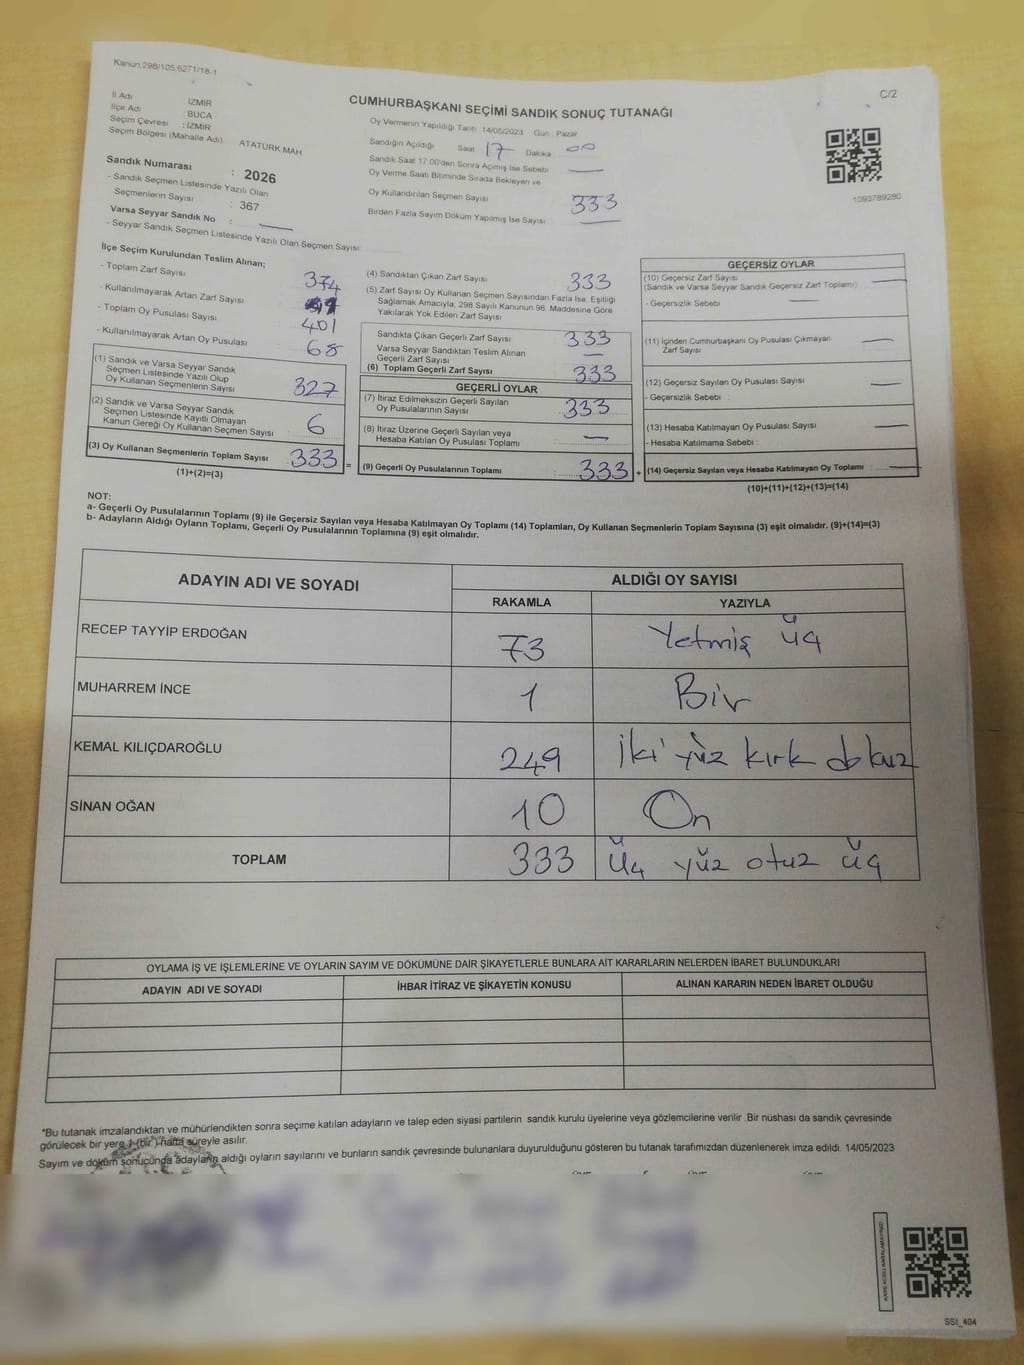 Kanun:298/105,6271/18-1
C/2
CUMHURBAŞKANI SEÇİMİ SANDIK SONUÇ TUTANAĞI
İl Adı İZMİR
İlçe Adı BUCA
Seçim Çevresi : İZMİR
Seçim Bölgesi (Mahalle Adı) ATATÜRK MAH
Oy Vermenin Yapıldığı Tarih :14/05/2023 Gün : Pazar
Sandığın Açıldığı Saat 17 Dakika 00
Sandık Saat 17:00'den Sonra Açılmış İse Sebebi
Oy Verme Saati Bitiminde Sırada Bekleyen ve
Oy Kullandırılan Seçmen Sayısı 333
Birden Fazla Sayım Döküm Yapılmış İse Sayısı
1093789280
Sandık Numarası : 2026
- Sandık Seçmen Listesinde Yazılı Olan
Seçmenlerin Sayısı : 367
Varsa Seyyar Sandık No :
- Seyyar Sandık Seçmen Listesinde Yazılı Olan Seçmen Sayısı
İlçe Seçim Kurulundan Teslim Alınan;
- Toplam Zarf Sayısı 374
- Kullanılmayarak Artan Zarf Sayısı
- Toplam Oy Pusulası Sayısı 401
- Kullanılmayarak Artan Oy Pusulası 68
(1) Sandık ve Varsa Seyyar Sandık
Seçmen Listesinde Yazılı Olup
Oy Kullanan Seçmenlerin Sayısı 327
(2) Sandık ve Varsa Seyyar Sandık
Seçmen Listesinde Kayıtlı Olmayan
Kanun Gereği Oy Kullanan Seçmen Sayısı 6
(3) Oy Kullanan Seçmenlerin Toplam Sayısı 333 =
(1)+(2)=(3)
(4) Sandıktan Çıkan Zarf Sayısı 333
(5) Zarf Sayısı Oy Kullanan Seçmen Sayısından Fazla İse, Eşitliği
Sağlamak Amacıyla, 298 Sayılı Kanunun 98. Maddesine Göre
Yakılarak Yok Edilen Zarf Sayısı
Sandıkta Çıkan Geçerli Zarf Sayısı 333
Varsa Seyyar Sandıktan Teslim Alınan
Geçerli Zarf Sayısı
(6) Toplam Geçerli Zarf Sayısı 333
GEÇERLİ OYLAR
(7) İtiraz Edilmeksizin Geçerli Sayılan
Oy Pusulalarının Sayısı 333
(8) İtiraz Üzerine Geçerli Sayılan veya
Hesaba Katılan Oy Pusulası Toplamı
(9) Geçerli Oy Pusulalarının Toplamı 333 +
GEÇERSİZ OYLAR
(10) Geçersiz Zarf Sayısı
(Sandık ve Varsa Seyyar Sandık Geçersiz Zarf Toplamı)
- Geçersizlik Sebebi
(11) İçinden Cumhurbaşkanı Oy Pusulası Çıkmayan
Zarf Sayısı
(12) Geçersiz Sayılan Oy Pusulası Sayısı
- Geçersizlik Sebebi :
(13) Hesaba Katılmayan Oy Pusulası Sayısı
- Hesaba Katılmama Sebebi :
(14) Geçersiz Sayılan veya Hesaba Katılmayan Oy Toplamı
(10)+(11)+(12)+(13)=(14)
NOT:
a- Geçerli Oy Pusulalarının Toplamı (9) ile Geçersiz Sayılan veya Hesaba Katılmayan Oy Toplamı (14) Toplamları, Oy Kullanan Seçmenlerin Toplam Sayısına (3) eşit olmalıdır. (9)+(14)=(3)
b- Adayların Aldığı Oyların Toplamı, Geçerli Oy Pusulalarının Toplamına (9) eşit olmalıdır.
ADAYIN ADI VE SOYADI ALDIĞI OY SAYISI
RAKAMLA YAZIYLA
RECEP TAYYİP ERDOĞAN 73 Yetmiş üç
MUHARREM İNCE 1 Bir
KEMAL KILIÇDAROĞLU 249 İki yüz kırk dokuz
SİNAN OĞAN 10 On
TOPLAM 333 Üç yüz otuz üç
OYLAMA İŞ VE İŞLEMLERİNE VE OYLARIN SAYIM VE DÖKÜMÜNE DAİR ŞİKAYETLERLE BUNLARA AİT KARARLARIN NELERDEN İBARET BULUNDUKLARI
ADAYIN ADI VE SOYADI İHBAR İTİRAZ VE ŞİKAYETİN KONUSU ALINAN KARARIN NEDEN İBARET OLDUĞU
*Bu tutanak imzalandıktan ve mühürlendikten sonra seçime katılan adayların ve talep eden siyasi partilerin sandık kurulu üyelerine veya gözlemcilerine verilir .Bir nüshası da sandık çevresinde
görülecek bir yere 1 (bir ) hafta süreyle asılır.
Sayım ve döküm sonucunda adayların aldığı oyların sayılarını ve bunların sandık çevresinde bulunanlara duyurulduğunu gösteren bu tutanak tarafımızdan düzenlenerek imza edildi. 14/05/2023
SSI_404